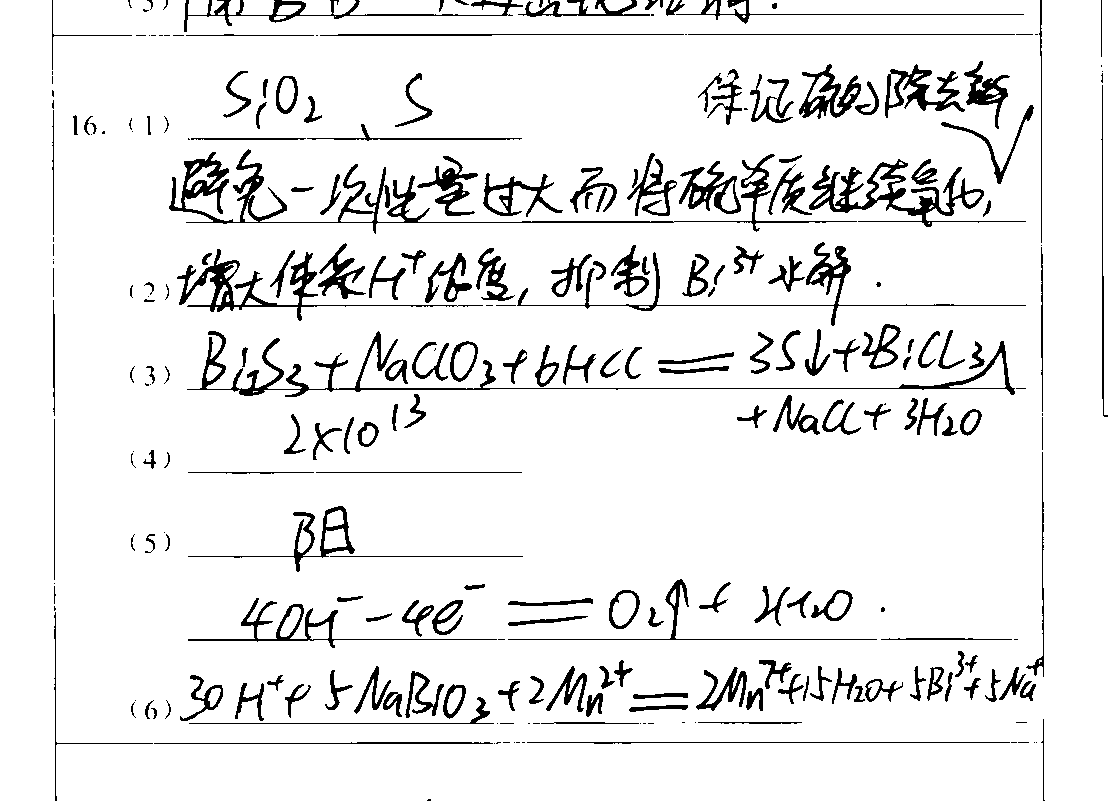 (3)
16. (1) SiO2、S 保证硫的除去率
避免一次性量过大而将硫单质继续氧化,
(2) 增大体系H⁺浓度, 抑制 Bi³⁺水解.
(3) Bi2S3+NaClO3+6HCl══3S↓+2BiCl3
+NaCl+3H2O
(4) 2×10¹³
(5) 阳
4OH⁻-4e⁻══O2↑+2H2O.
(6) 30H⁺+5NaBiO3+2Mn²⁺══2Mn⁷⁺+15H2O+5Bi³⁺+5Na⁺